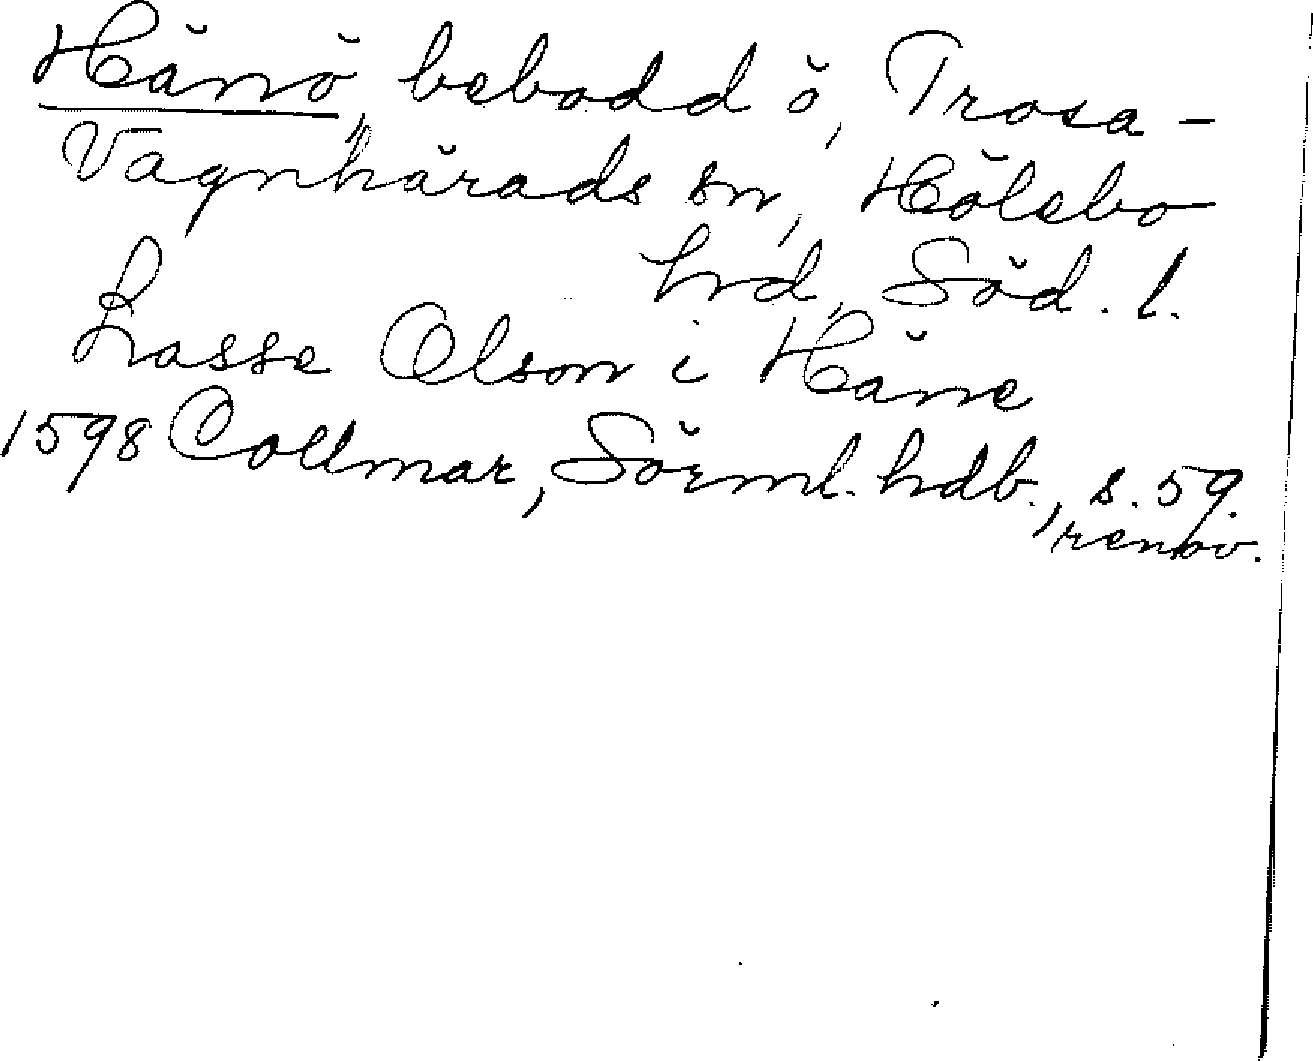 Hånö, bebodd ö, Trosa-
Vagnhärads sn, Hölebo
hrd, Söd. l.
Lasse Olson i Håne
1598 Collmar, Sörml. hdb., s. 59.
renov.